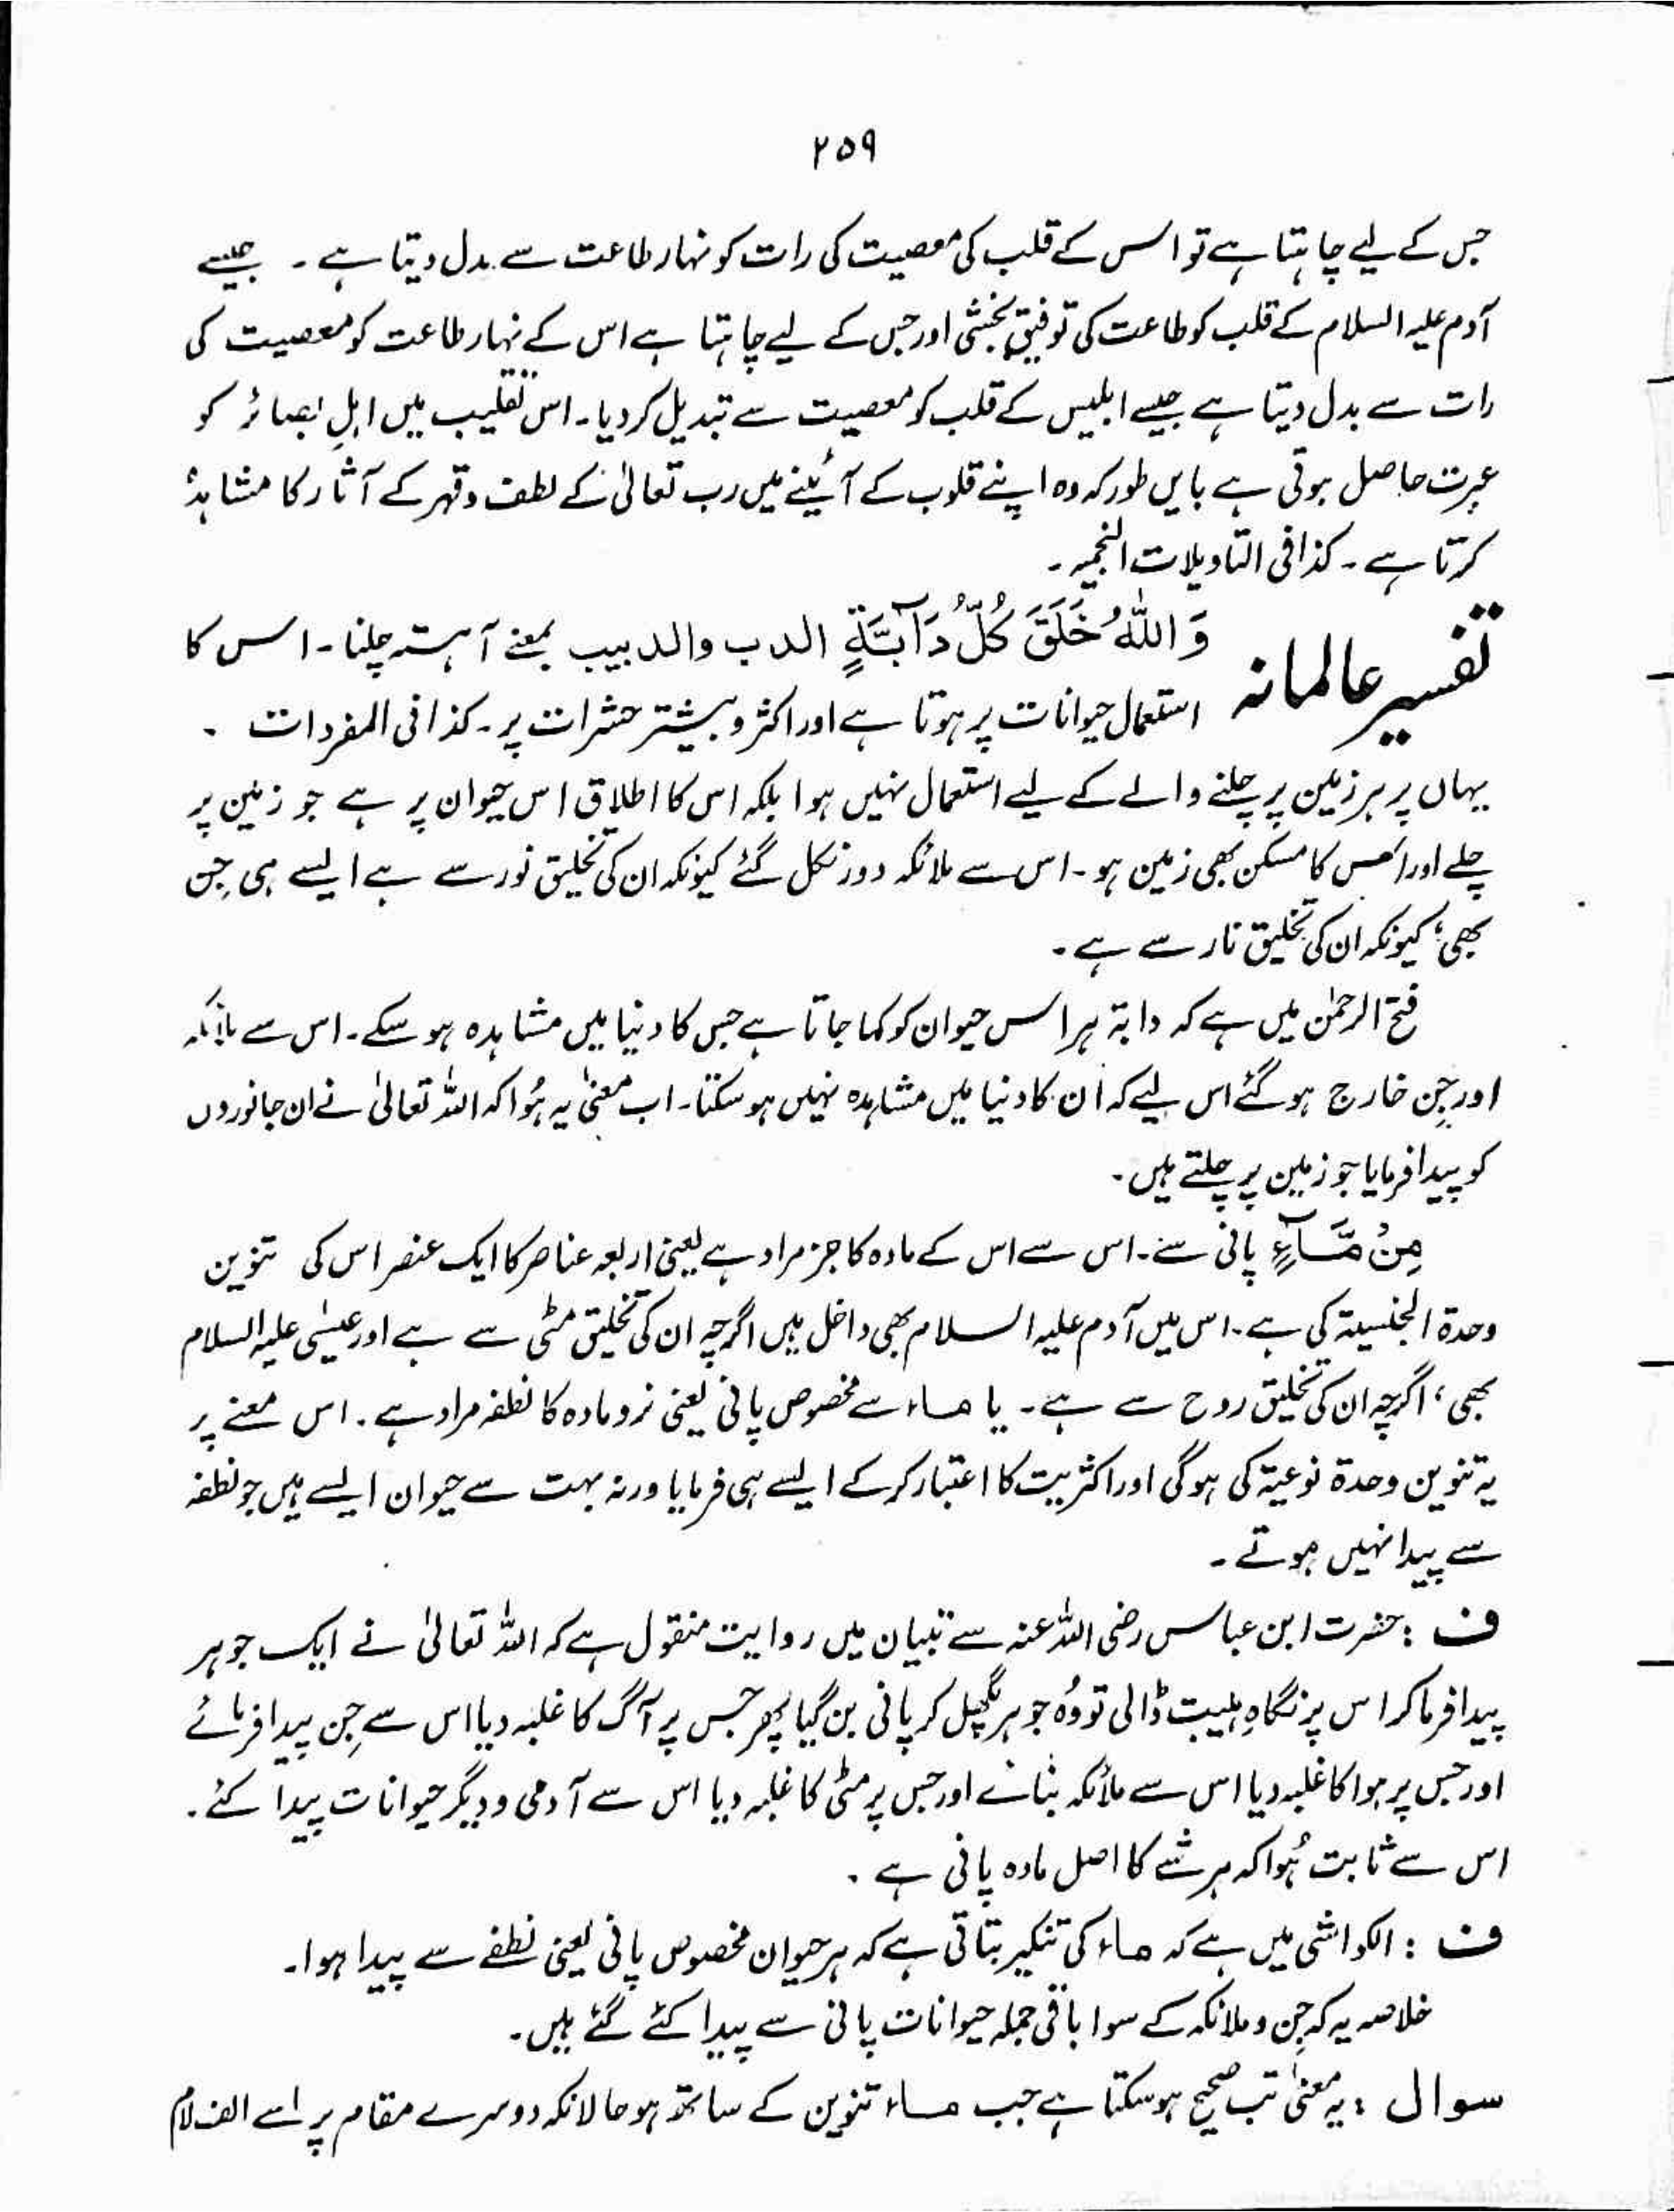 ۲۵۹
جس کے لیے چاہتا ہے تو اس کے قلب کی معصیت کی رات کو نہار طاعت سے بدل دیتا ہے ۔ جیسے
آدم علیہ السلام کے قلب کو طاعت کی توفیق بخشی اور جس کے لیے چاہتا ہے اس کے نہار طاعت کو معصیت کی
رات سے بدل دیتا ہے جیسے ابلیس کے قلب کو معصیت سے تبدیل کر دیا۔ اس تقلیب میں اہلِ بصائر کو
عبرت حاصل ہوتی ہے بایں طور کہ وہ اپنے قلوب کے آئینے میں رب تعالیٰ کے لطف و قہر کے آثار کا مشاہدہ
کرتا ہے ۔ کذا فی التاویلات النجمیہ ۔
تفسیر عالمانہ وَاللّٰهُ خَلَقَ كُلَّ دَآبَّةٍ الدب والدبیب بمعنے آہستہ چلنا ۔ اس کا
استعمال حیوانات پر ہوتا ہے اور اکثر و بیشتر حشرات پر ۔ کذا فی المفردات ۔
یہاں پر ہر زمین پر چلنے والے کے لیے استعمال نہیں ہوا بلکہ اس کا اطلاق اس حیوان پر ہے جو زمین پر
چلے اور اُس کا مسکن بھی زمین ہو ۔ اس سے ملائکہ دور نکل گئے کیونکہ ان کی تخلیق نور سے ہے ایسے ہی جِن
بھی، کیونکہ ان کی تخلیق نار سے ہے ۔
فتح الرحمٰن میں ہے کہ دابۃ ہر اس حیوان کو کہا جاتا ہے جس کا دنیا میں مشاہدہ ہو سکے ۔ اس سے ملائکہ
اور جِن خارج ہو گئے اس لیے کہ اُن کا دنیا میں مشاہدہ نہیں ہو سکتا ۔ اب معنیٰ یہ ہُوا کہ اللہ تعالیٰ نے ان جانوروں
کو پیدا فرمایا جو زمین پر چلتے ہیں ۔
مِنْ مَّآءٍ پانی سے ۔ اس سے اس کے مادہ کا جز مراد ہے یعنی اربعہ عناصر کا ایک عنصر اس کی تنوین
وحدۃ الجنسیۃ کی ہے ۔ اس میں آدم علیہ السلام بھی داخل ہیں اگرچہ ان کی تخلیق مٹی سے ہے اور عیسٰی علیہ السلام
بھی، اگرچہ ان کی تخلیق روح سے ہے ۔ یا ماء سے مخصوص پانی یعنی نر و مادہ کا نطفہ مراد ہے ۔ اس معنے پر
یہ تنوین وحدۃ نوعیۃ کی ہوگی اور اکثریت کا اعتبار کر کے ایسے ہی فرمایا ورنہ بہت سے حیوان ایسے ہیں جو نطفہ
سے پیدا نہیں ہوتے ۔
ف : حضرت ابن عباس رضی اللہ عنہ سے تبیان میں روایت منقول ہے کہ اللہ تعالیٰ نے ایک جوہر
پیدا فرما کر اس پر نگاہِ ہیبت ڈالی تو وُہ جوہر پگھل کر پانی بن گیا پھر جس پر آگ کا غلبہ دیا اس سے جِن پیدا فرمائے
اور جس پر ہوا کا غلبہ دیا اس سے ملائکہ بنائے اور جس پر مٹی کا غلبہ دیا اس سے آدمی و دیگر حیوانات پیدا کئے ۔
اس سے ثابت ہُوا کہ ہر شے کا اصل مادہ پانی ہے ۔
ف : الکواشی میں ہے کہ ماء کی تنکیر بتاتی ہے کہ ہر حیوان مخصوص پانی یعنی نطفے سے پیدا ہوا ۔
خلاصہ یہ کہ جِن و ملائکہ کے سوا باقی جملہ حیوانات پانی سے پیدا کئے گئے ہیں ۔
سوال : یہ معنیٰ تب صحیح ہو سکتا ہے جب ماء تنوین کے ساتھ ہو حالانکہ دوسرے مقام پر اسے الف لام